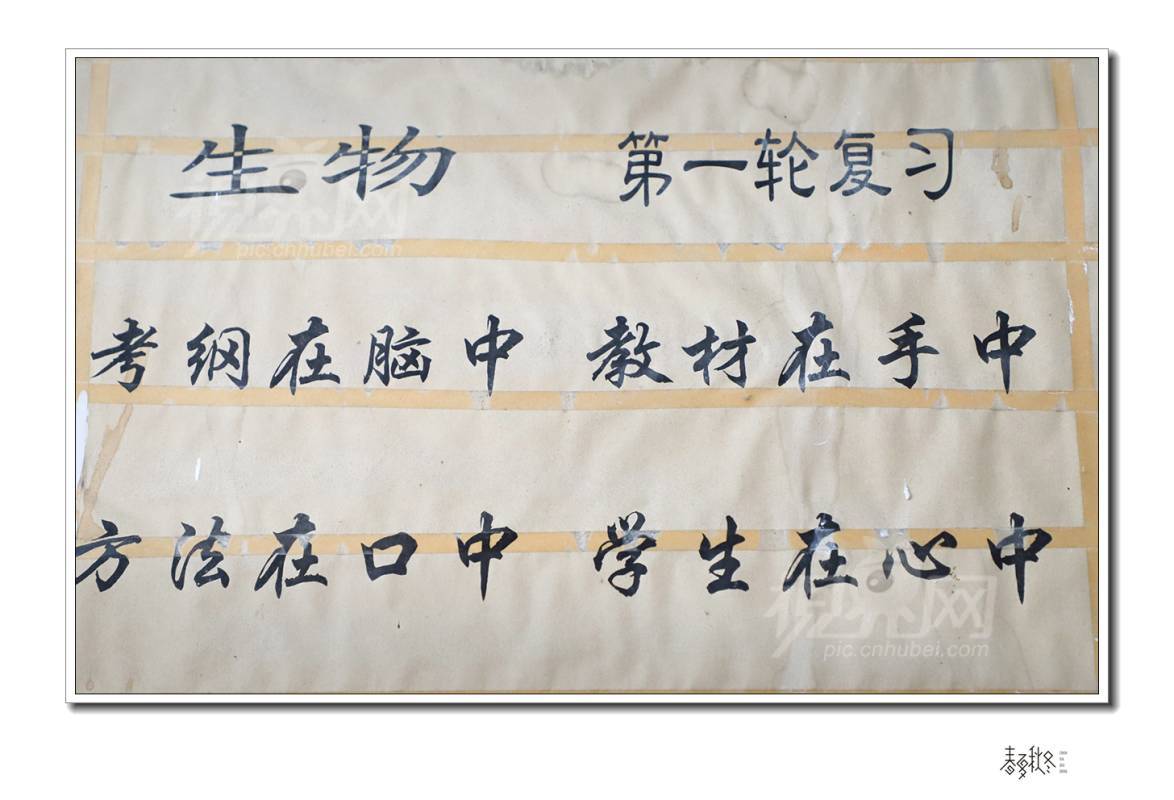 生物 第一轮复习
考纲在脑中 教材在手中
方法在口中 学生在心中
pic.cnhubei.com
pic.cnhubei.com
春夏秋冬